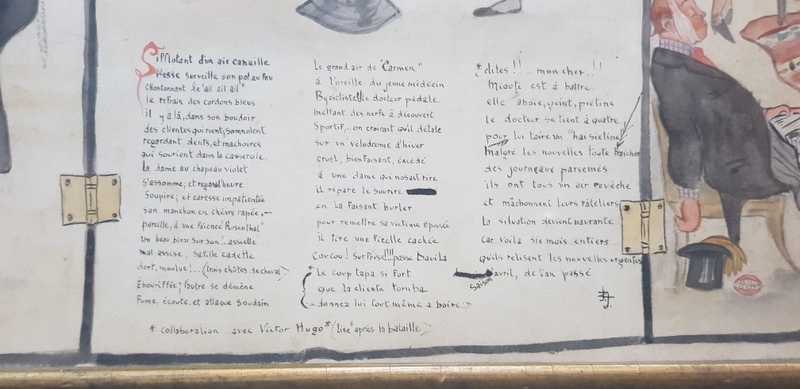 Sifflotant d'un air canaille
Hesse surveille son pot au feu
Chantonnant le "ail ail ail"
le refrain des cordons bleus
il y a là, dans son boudoir
des clientes qui rient, somnolent
regardant, dents, et machoires
qui sourient dans la casserole.
La dame au chapeau violet
s'assomme; et
Soupire; et caresse impatientée
son manchon en chèvre rapée,
pareille, à une faïence "Rosenthal"
un beau bleu sur son!..assiette
mal assise, sa fille cadette
dort, moulue!.. (trois chûtes de cheval)
Ebouriffée; l'autre se démène
Fume, écoute, et attaque soudain
Le grand air de "Carmen"
à l'oreille du jeune médecin
Byciclistelle docteur pédale.
mettant des nerfs à découvert
Sportif,.. on croirait qu'il détale
sur un vélodrome d'hiver
cruel, bienfaisant, excédé
à une dame qui n'osait rire
il répare le sourire
en la faisant hurler
pour remettre sa victime épuisée
il tire une ficelle cachée
Coucou! surprise!!! passe
* Le coup tapa si fort
que la cliente tomba
donnez lui tout même a boire.
* dites!!.. mon cher..!!
Mioute est à battre.
elle aboie, geint, piétine
le docteur se tient à quatre
pour lui faire un "
Malgré les nouvelles toute fraiches
des journeaux parsemés
ils ont tous un air revêche
et mâchonnent leurs râteliers
la situation devient navrante
car voila six mois entiers
qu'ils relisent les nouvelles urgentes
saison
d'avril, de l'an passé
* collaboration avec Victor Hugo* (lire "après la bataille")